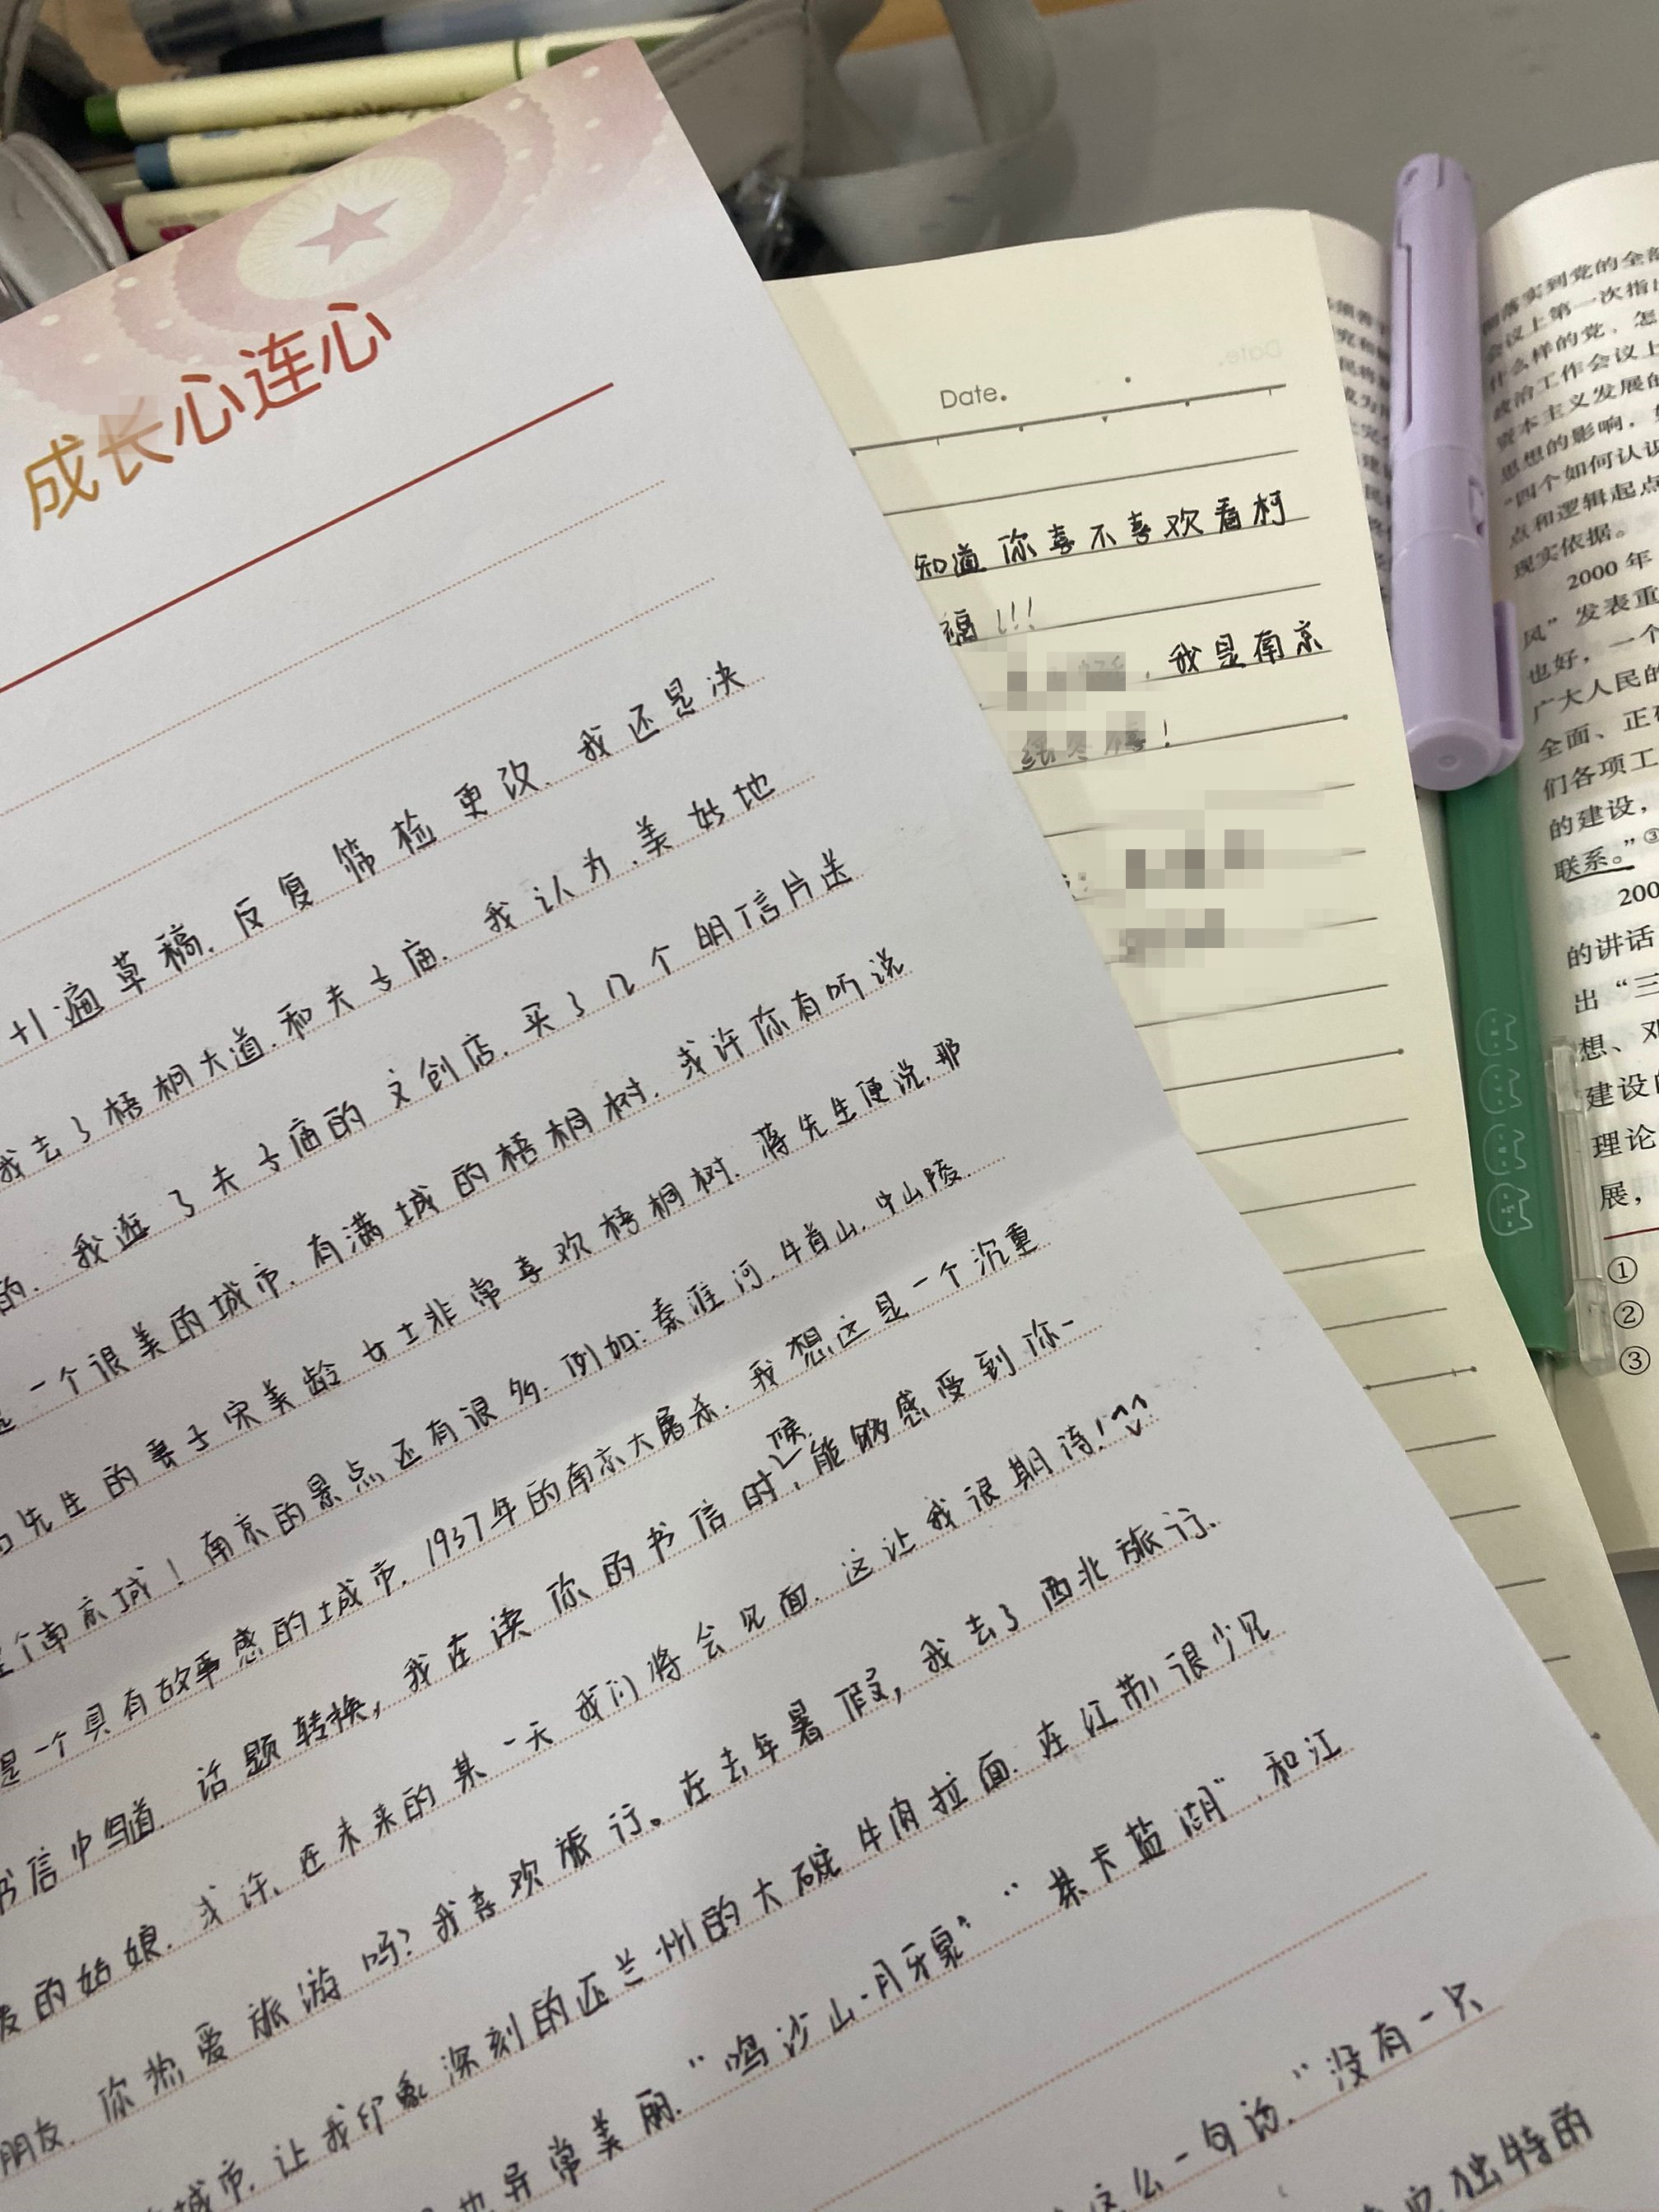 成长心连心
卅遍草稿.反复筛检更改.我还是决
我去了梧桐大道.和夫子庙.我认为.美好地
的.我逛了夫子庙的文创店.买了几个明信片送
一个很美的城市.有满城的梧桐树.或许你有听说
先生的妻子宋美龄女士非常喜欢梧桐树.蒋先生便说.那
个南京城!南京的景点还有很多.例如:秦淮河.牛首山.中山陵.
是一个具有故事感的城市.1937年的南京大屠杀.我想这是一个沉重
书信中得知道.话题转换,我在读你的书信时候,能够感受到你一
的姑娘.或许.在未来的某一天我们将会见面.这让我很期待!
朋友.你热爱旅游吗?我喜欢旅行。在去年暑假,我去了西北旅行.
城市.让我印象深刻的还兰州的大碗牛肉拉面.在江苏很少见
也异常美丽."鸣沙山-月牙泉""茶卡盐湖".和江
这么一句话."没有一只
独特的
Date.
知道你喜不喜欢看柯
福!!!
.我是南京
!
落实到党的全部
会议上第一次指出
什么样的党、怎
政治工作会议上
资本主义发展的
思想的影响,
"四个如何认识
点和逻辑起点
现实依据。
2000年
风"发表重
也好,一个
广大人民的
全面、正确
们各项工
的建设,
联系。"③
200
的讲话
出"三
想、邓
建设的
理论
展,
①
②
③